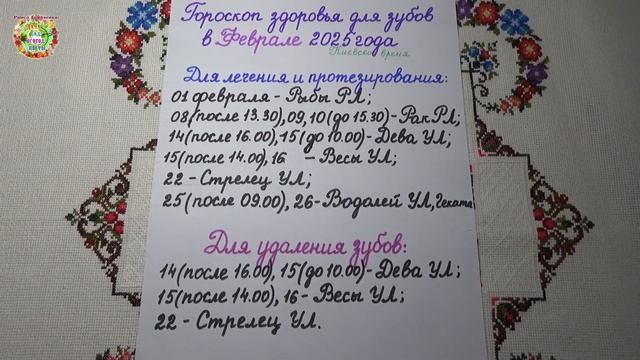 Гороскоп здоровья для зубов
в Феврале 2025 года
Киевское время
Для лечения и протезирования:
01 февраля - Рыбы РЛ;
08(после 13.30), 09, 10(до 15.30)- Рак РЛ;
14(после 16.00), 15(до 10.00)- Дева УЛ;
15(после 14.00), 16 - Весы УЛ;
22 - Стрелец УЛ;
25(после 09.00), 26- Водолей УЛ, Геката.
Для удаления зубов:
14(после 16.00), 15(до 10.00)- Дева УЛ;
15(после 14.00), 16 - Весы УЛ;
22 - Стрелец УЛ.